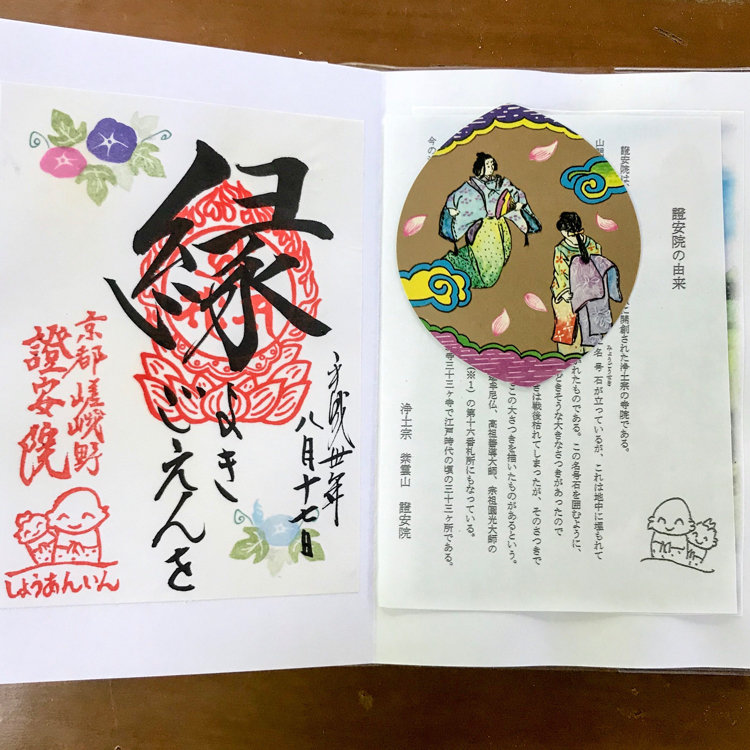 縁
よき
ごえんを
平成卅年
八月十七日
京都 嵯峨野
證安院
しょうあんいん
證安院の由来
證安院は、
に開創された浄土宗の寺院である。
山門
名号石が立っているが、これは地中に埋もれて
れたものである。この名号石を囲むように、
どきそうな大きなさつきがあったので
きは戦後枯れてしまったが、そのさつきで
この大さつきを描いたものがあるという。
牟尼仏、高祖善導大師、宗祖圓光大師の
(※1)の第十六番札所にもなっている。
今の
寺三十三ヶ寺で江戸時代の頃の三十三ヶ所である。
浄土宗 紫雲山 證安院